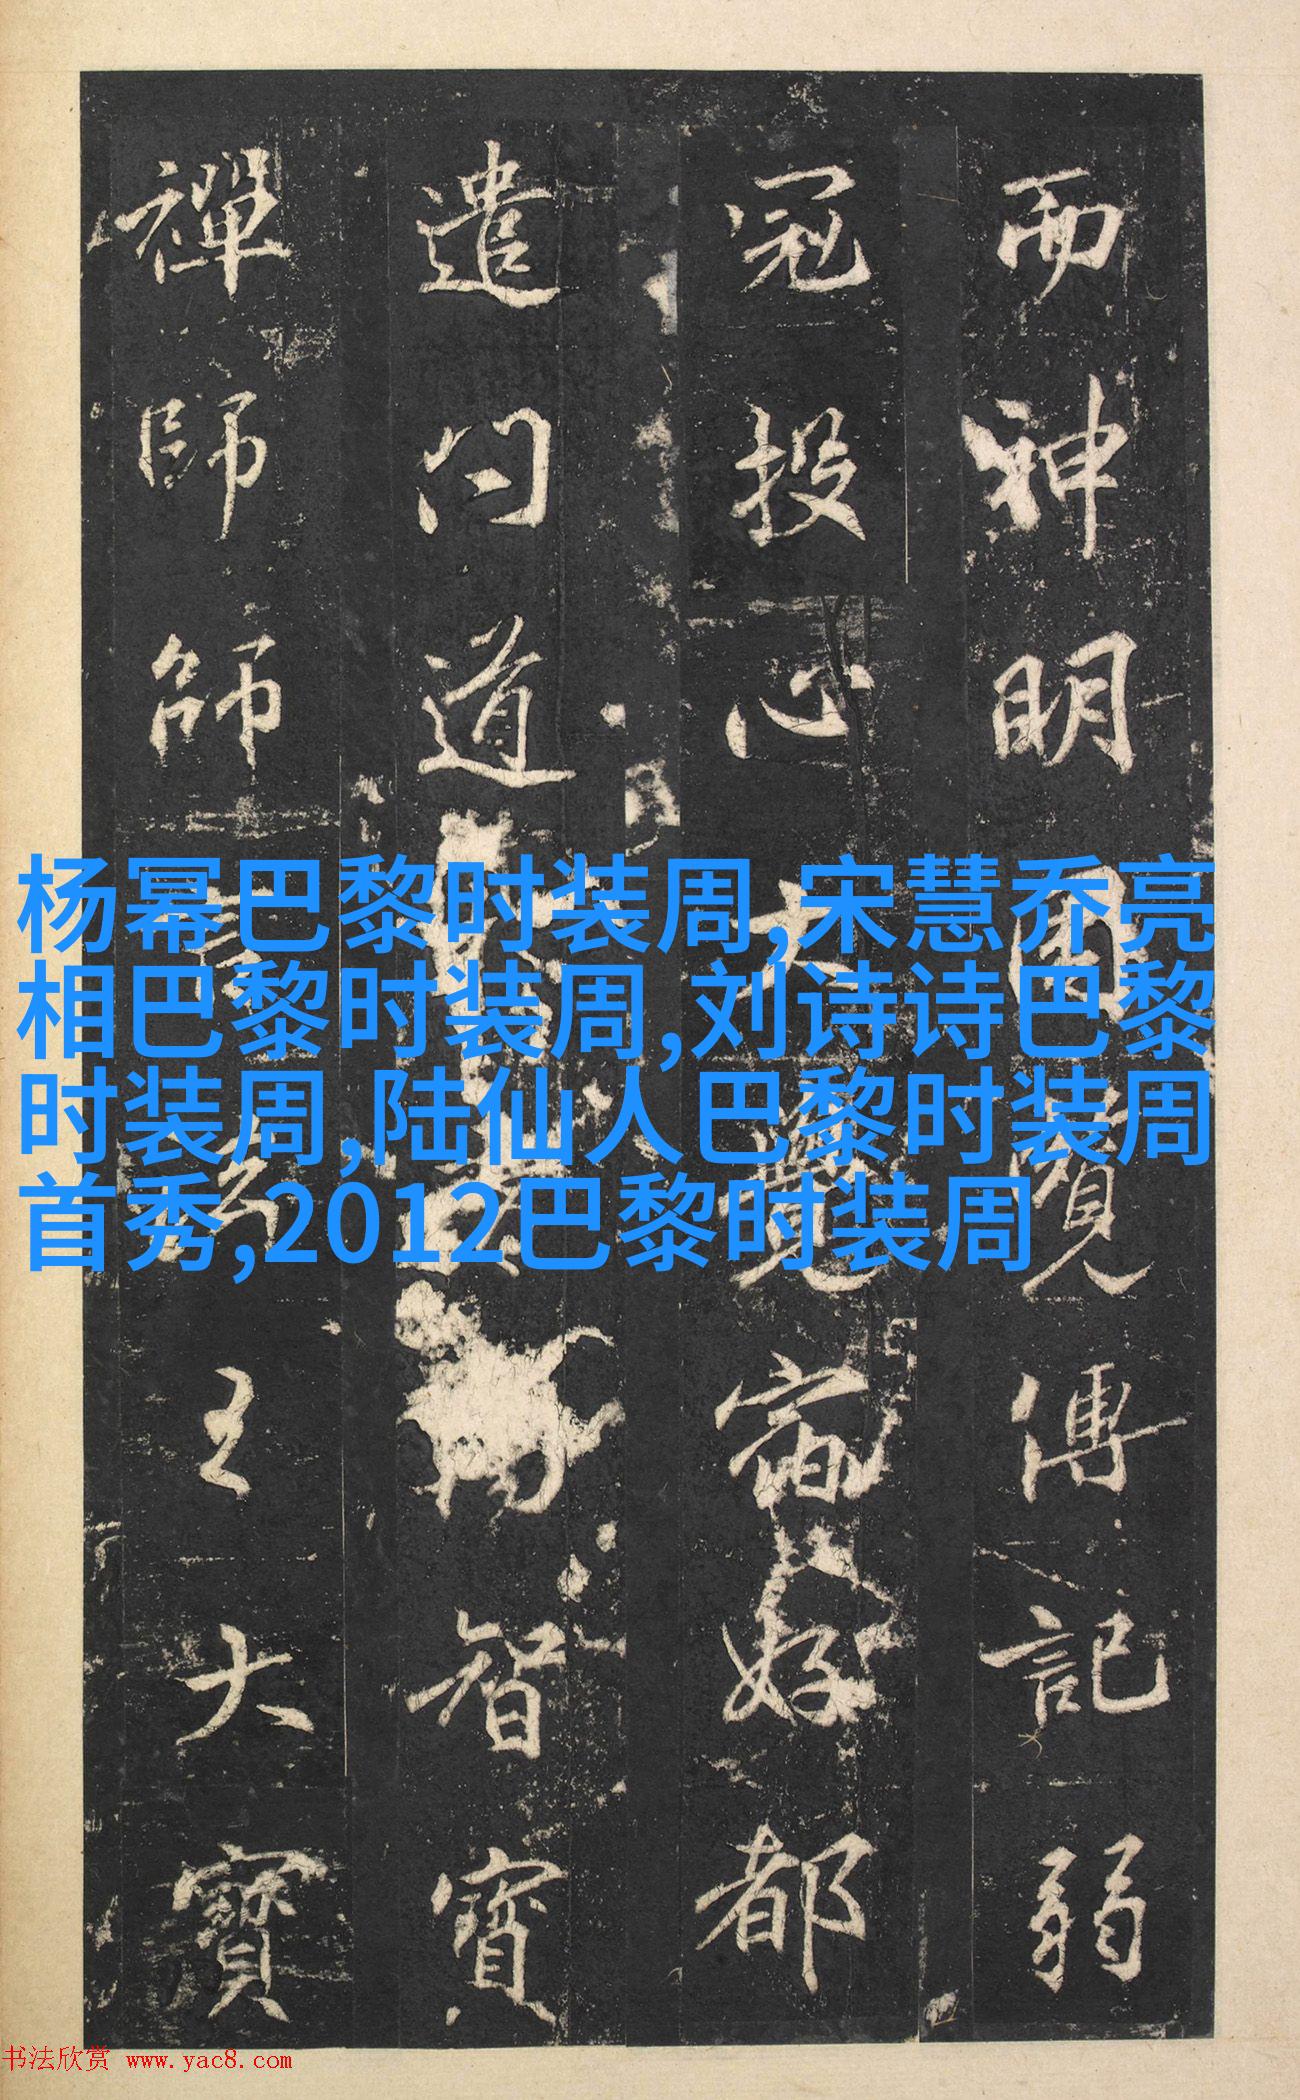 而神明周覽傳記弱
冠投心大覺宿好都
遣問道智寶
禪師師大寶
杨幂巴黎时装周,宋慧乔亮
相巴黎时装周,刘诗诗巴黎
时装周,陆仙人巴黎时装周
首秀,2012巴黎时装周
书法欣赏 www.yac8.com